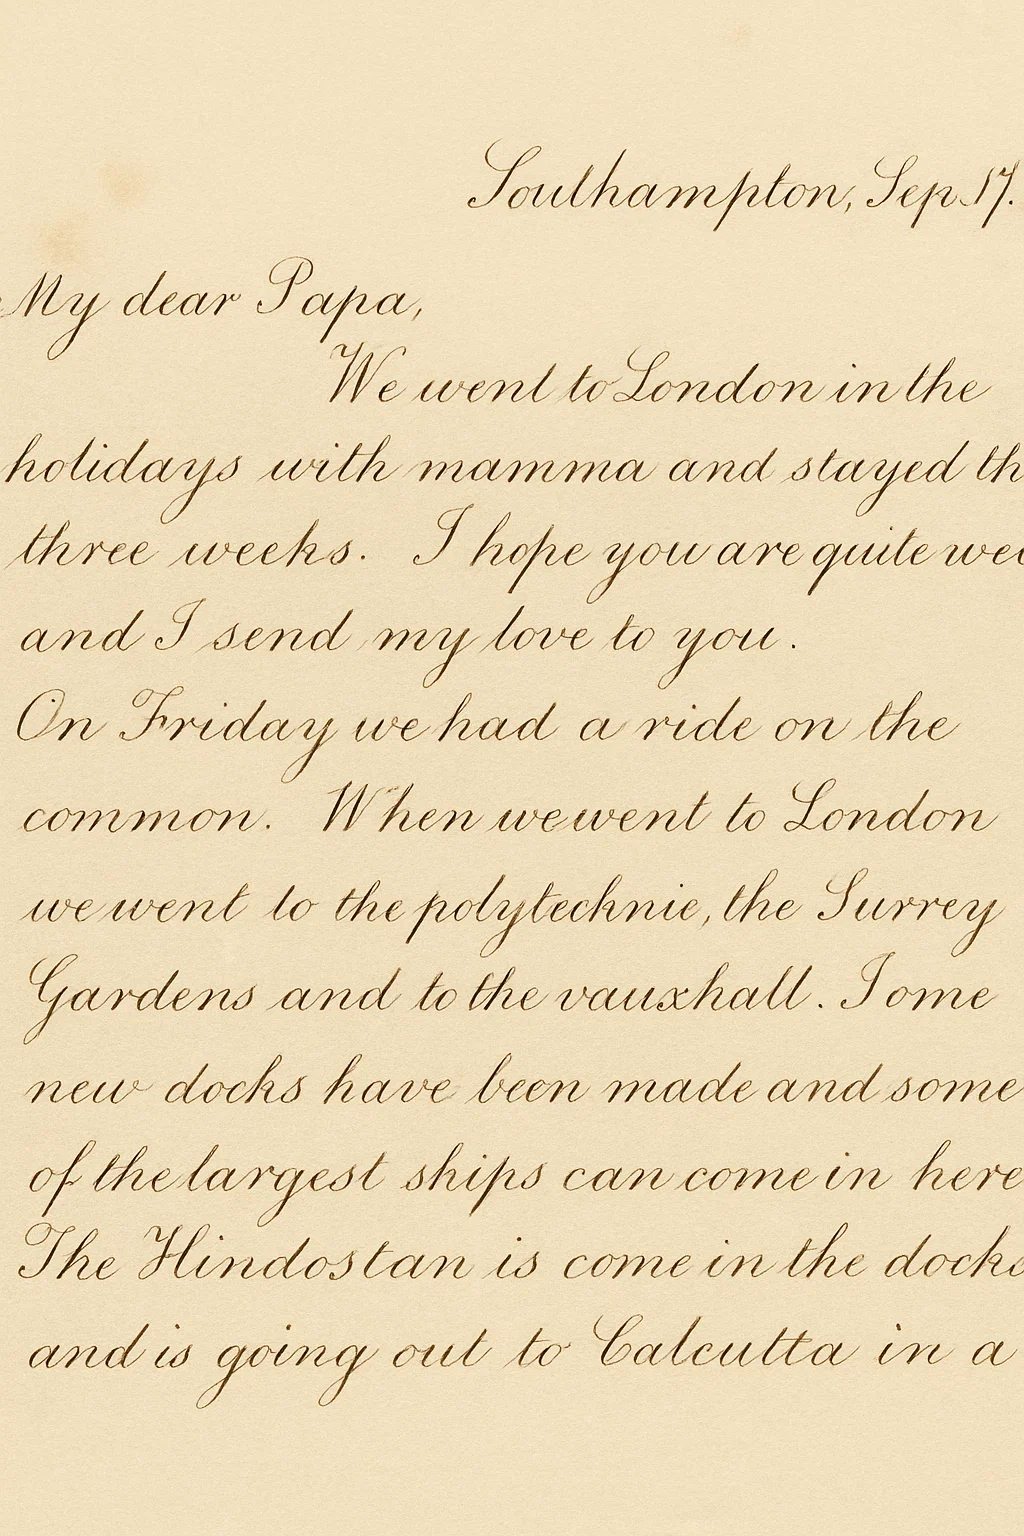 Southampton, Sep. 17.
My dear Papa,
We went to London in the
holidays with mamma and stayed th
three weeks. I hope you are quite wel
and I send my love to you.
On Friday we had a ride on the
common. When we went to London
we went to the polytechnie, the Surrey
Gardens and to the vauxhall. Some
new docks have been made and some
of the largest ships can come in here
The Hindostan is come in the docks
and is going out to Calcutta in a